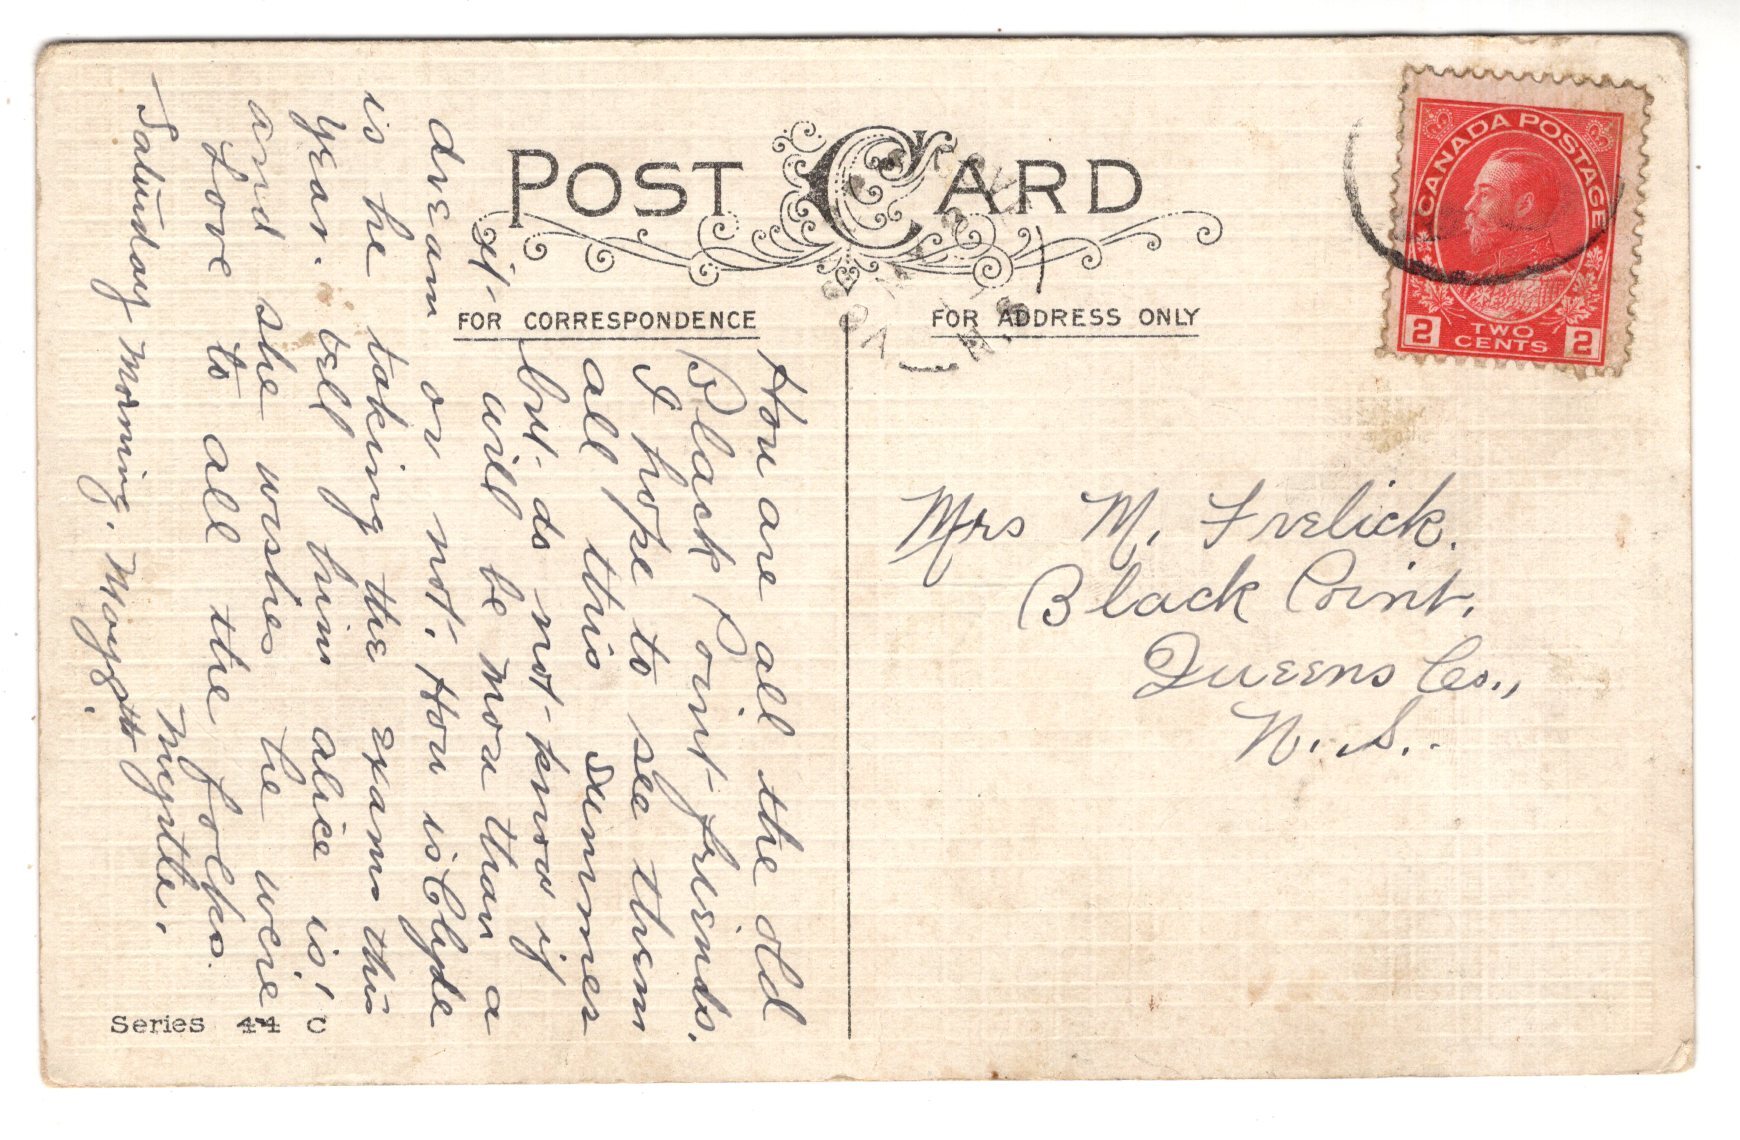 POST CARD
FOR CORRESPONDENCE
FOR ADDRESS ONLY
CANADA POSTAGE
2 TWO CENTS 2
How are all the old
Black Point friends.
I hope to see them
all this summer
but do not know if
it will be more than a
dream or not. How is Clyde
is he taking the exams this
year. tell him alice is!
and she wishes he were
Love to all the folks.
Myrtle.
Saturday Morning, May
Mrs M. Frelick.
Black Point,
Queens Co.,
N. S.
Series 44 C